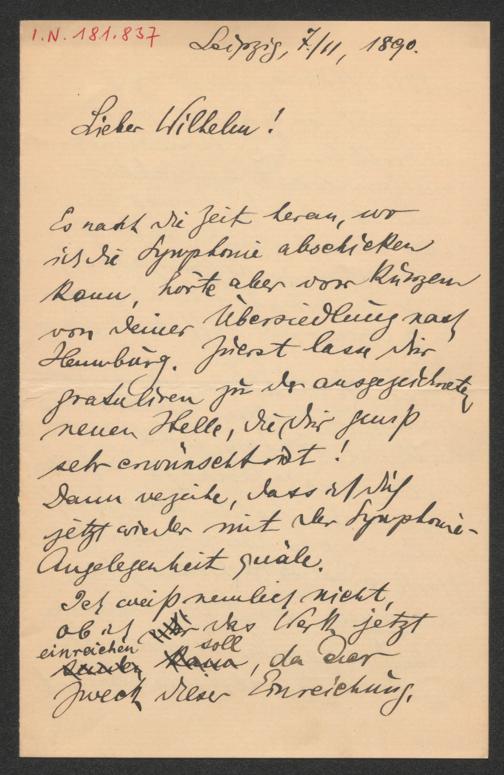 I.N. 181.837
Leipzig, 7/11, 1890.
Lieber Wilhelm!
Es naht die Zeit heran, wo
ich die Symphonie abschicken
kann, hörte aber vor Kurzem
von deiner Übersiedlung nach
Hamburg. Zuerst lass dir
gratuliren zu der ausgezeichneten
neuen Stelle, die dir gewiß
sehr erwünscht ist!
Dann verzeihe, dass ich dich
jetzt wieder mit der Symphonie-
Angelegenheit quäle.
Ich weiß nemlich nicht,
ob ich das Werk jetzt
einreichen soll
, da der
Zweck dieser Einreichung,